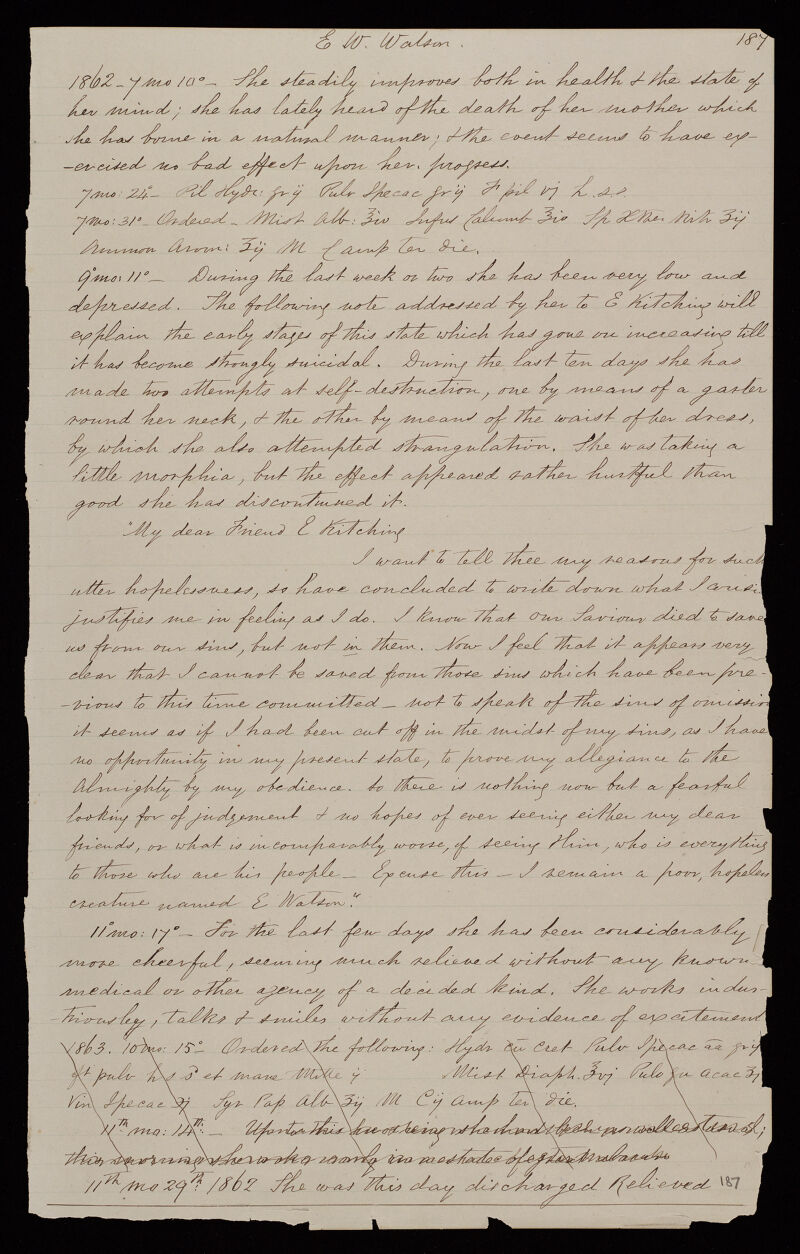 E W. Watson.
187
1862 - 7 mo 10° - She steadily improves both in health & the state of
her mind; she has lately heard of the death of her mother which
she has borne in a natural manner; & the event seems to have ex-
-ercised no bad effect upon her progress.
7 mo: 24° - Pil Hydr: gr ij Pulv Ipecac gr ij Ft pil vj h. s. s.
7 mo: 31° - Ordered - Mist Alb: ℥iv Infus Calumb ℥iv Sp Æther Nitr ʒij
Ammon Arom: ʒij M Camp ter die.
9° mo: 11° - During the last week or two she has been very low and
depressed. The following note addressed by her to E Kitching will
explain the early stages of this state which has gone on increasing till
it has become strongly suicidal. During the last ten days she has
made two attempts at self-destruction, one by means of a garter
round her neck, & the other by means of the waist of her dress,
by which she also attempted strangulation. She was taking a
little morphia, but the effect appeared rather hurtful than
good she has discontinued it.
"My dear Friend E Kitching
I want to tell thee my reasons for such
utter hopelessness, so have concluded to write down what I
justifies me in feeling as I do. I know that our Saviour died to save
us from our sins, but not in them. Now I feel that it appears very
clear that I cannot be saved from those sins which have been pre-
-vious to this time committed - not to speak of the sins of omission
it seems as if I had been cut off in the midst of my sins, as I have
no opportunity in my present state, to prove my allegiance to the
Almighty by my obedience. So there is nothing now but a fearful
looking for of judgement & no hopes of ever seeing either my dear
friends, or what is incomparably worse, of seeing Him, who is everything
to those who are his people - Excuse this - I remain a poor, hopeless
creature named E Watson."
11° mo: 17° - For the last few days she has been considerably
more cheerful, seeming much relieved without any known
medical or other agency of a decided kind. She works indus-
-triously, talks & smiles without any evidence of excitement
1863. 10 mo: 15° - Ordered the following: Hydr cū Cret Pulv Ipecac āā gr ij
ft pulv h s s et mane Mitte ij Mist Diaph. ℥vj Pulv Gu Acac ʒj
Vin Ipecac ʒj Syr Pap Alb ʒij M Cij amp ter die.
11th mo: 14th: - Up to this evening she had been as well as usual;
this morning she woke early in a state of great
11th mo 29th: 1862 She was this day discharged Relieved
187